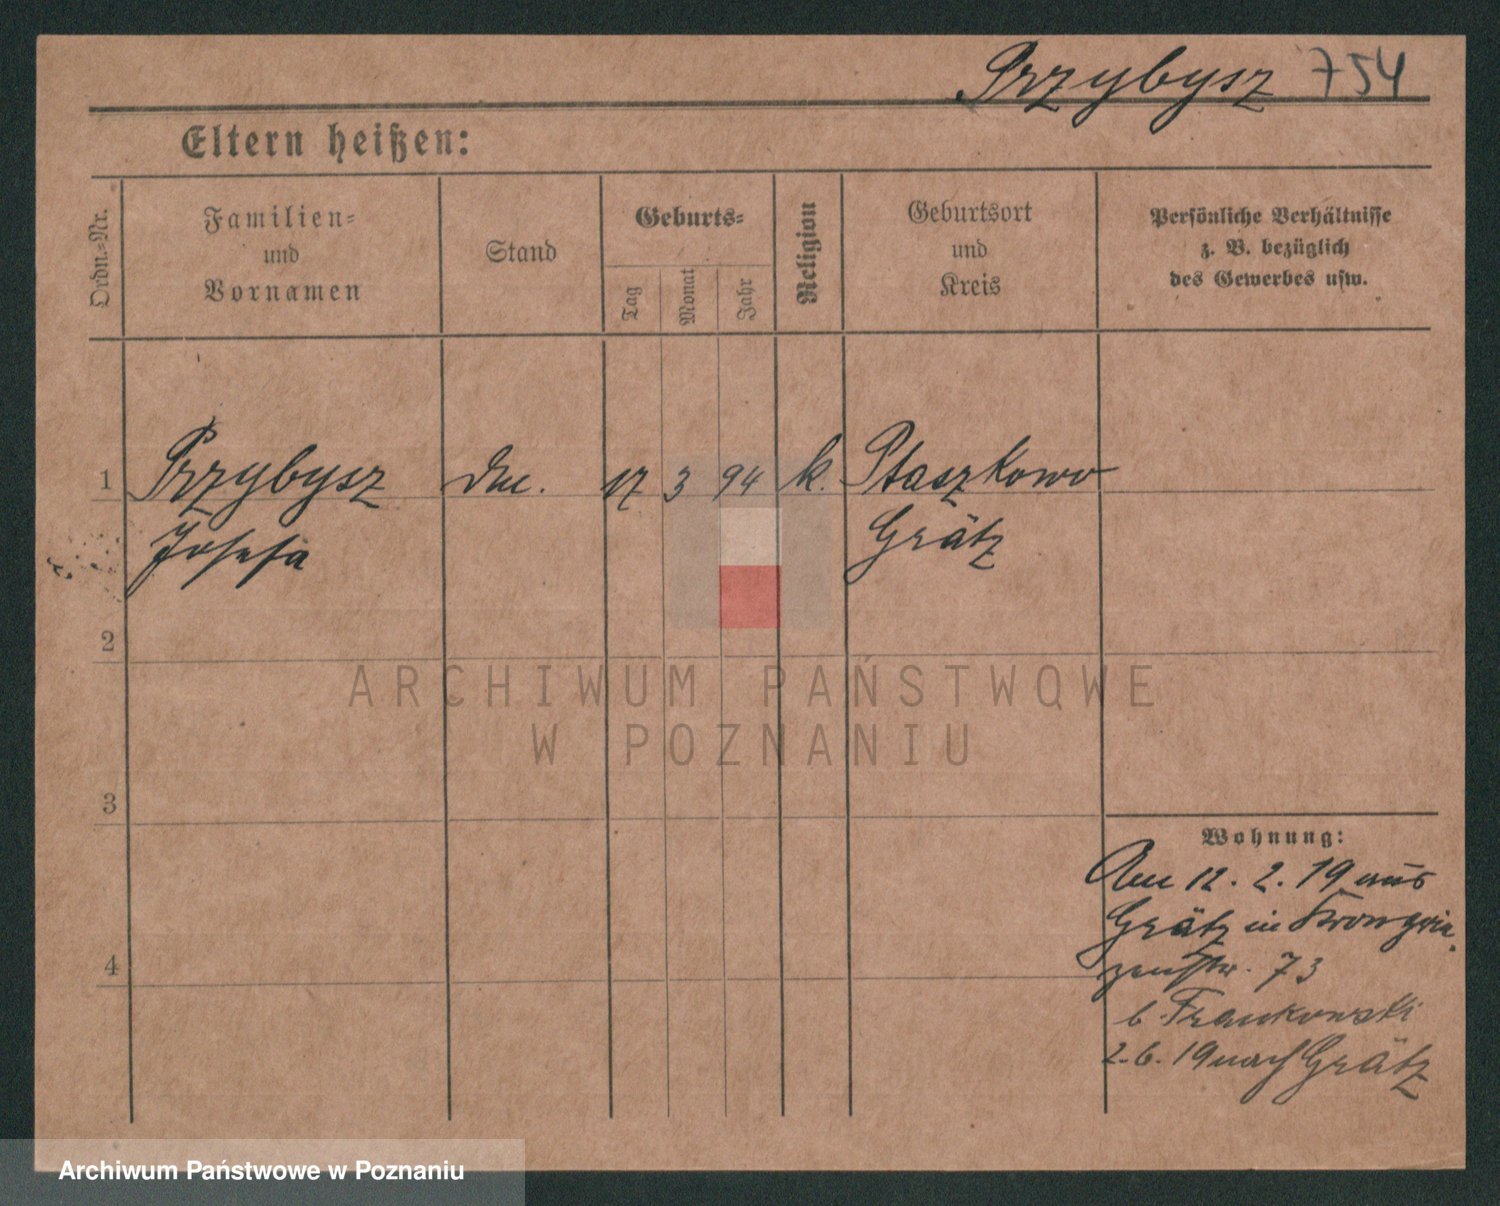 Przybysz 754
Eltern heißen:
Ordn.=Nr.
Familien=
und
Vornamen
Stand
Geburts=
Tag
Monat
Jahr
Religion
Geburtsort
und
Kreis
Persönliche Verhältnisse
z. B. bezüglich
des Gewerbes usw.
1 Przybysz 17 3 94 k. Ptaszkowo
Josefa Grätz
2
3
4
Wohnung:
Am 12. 2. 19 aus
Grätz in Kronprin
zenstr. 73
b. Frankowski
2. 6. 19 nach Grätz
ARCHIWUM PAŃSTWOWE
W POZNANIU
Archiwum Państwowe w Poznaniu